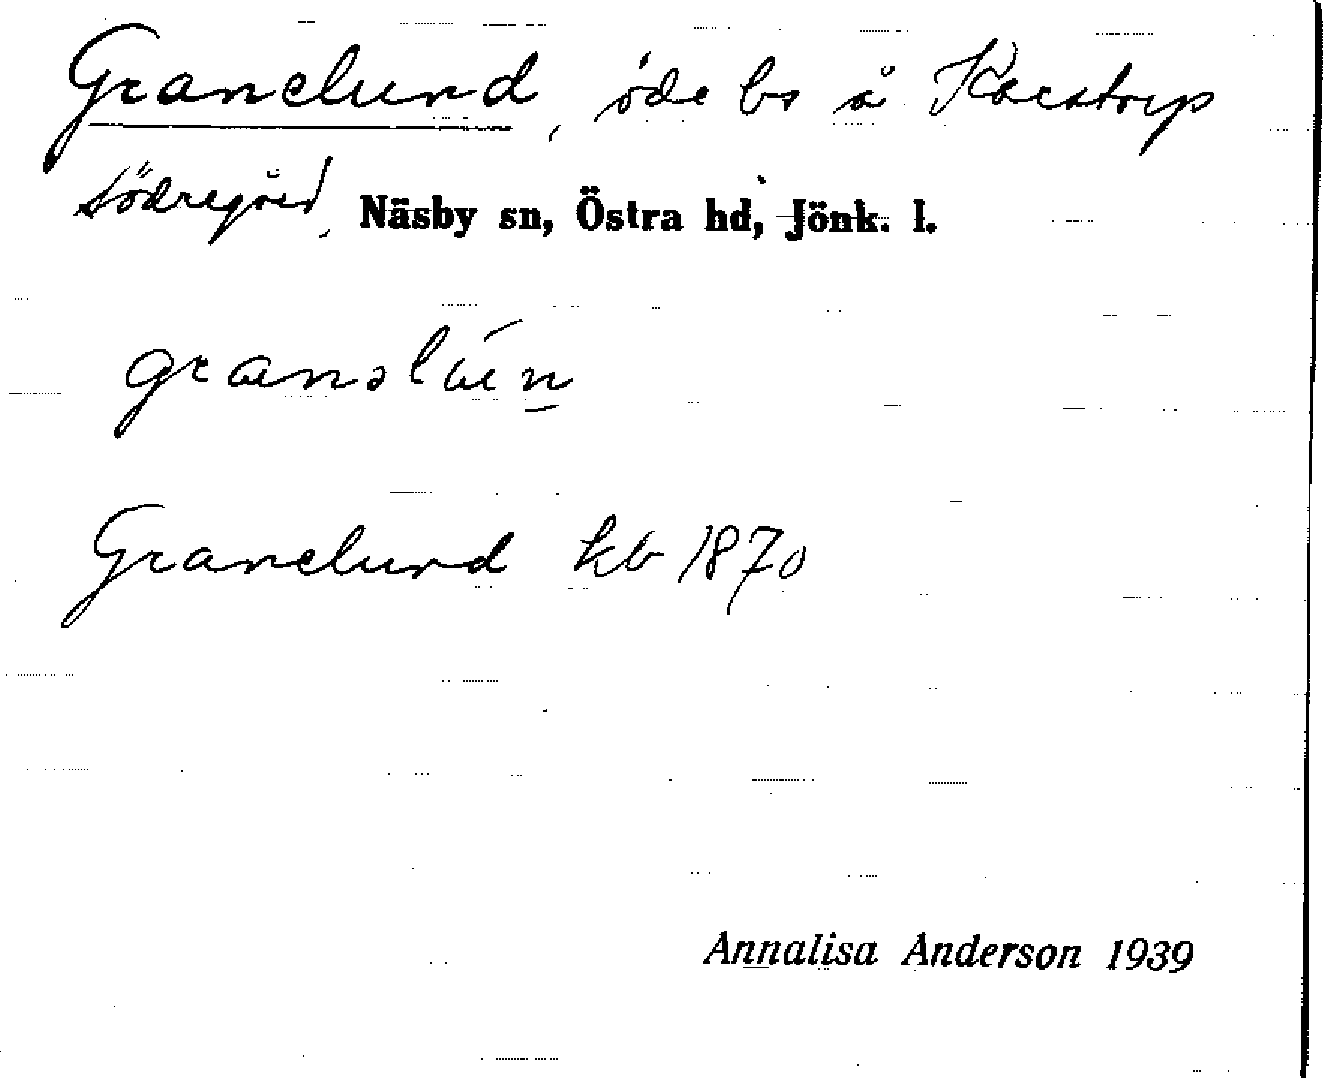 Granelund, öde bs å Karstorp
södregård, Näsby sn, Östra hd, Jönk. l.
Granelund kb 1870
Annalisa Anderson 1939